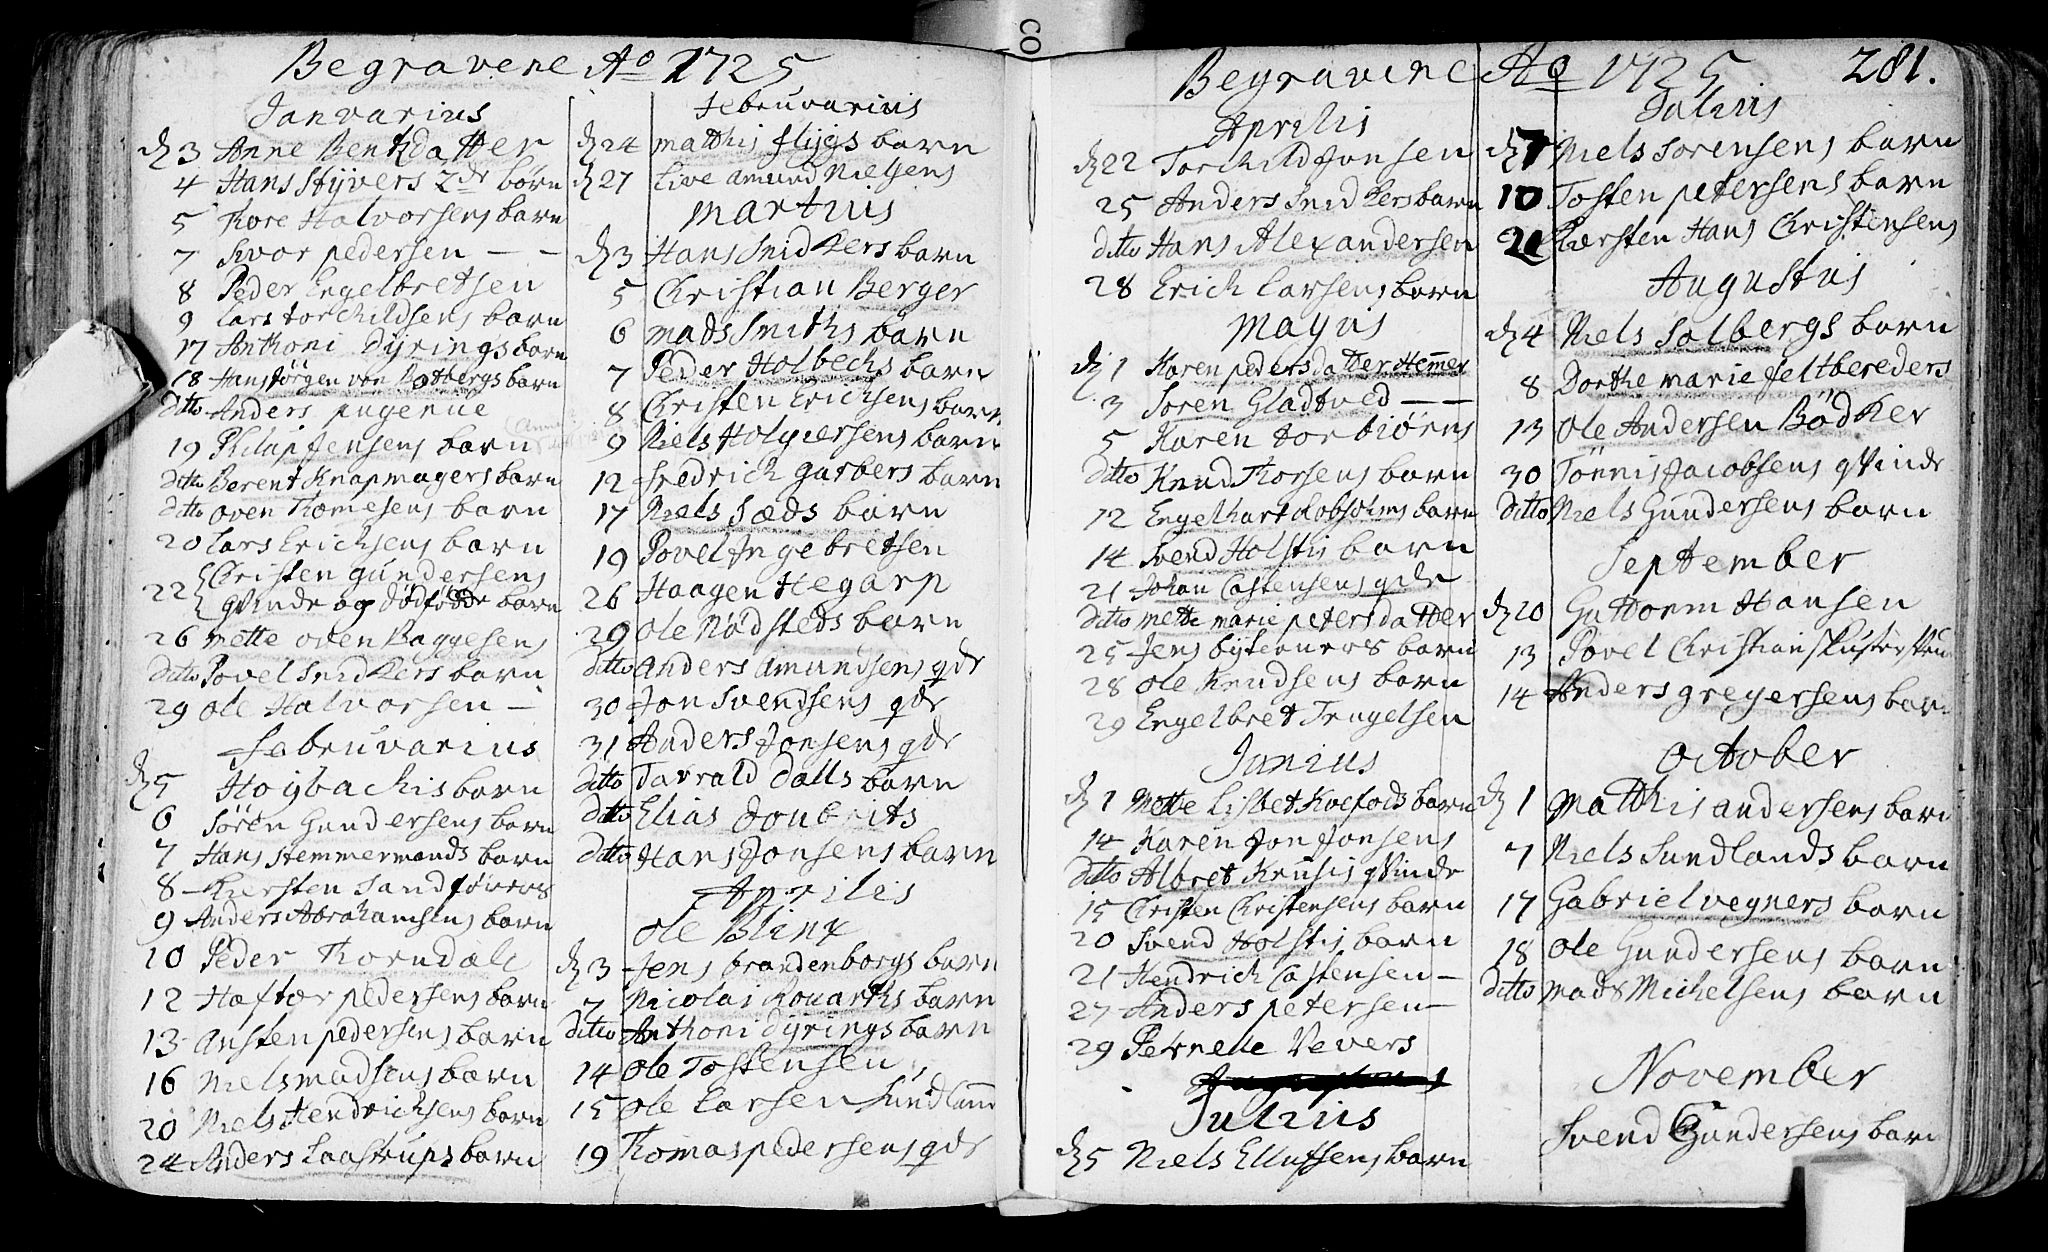 Begravene Ao 1725
Januarius
d 3 Anne Bentzdatter
4 Hans Styvers 2de börn
5 Tore Halvorsens barn
7 Ivor pedersen - -
8 Peder Engelbretsen
9 Lars torchildsens barn
17 Anthoni Dyrings barn
18 Hans Jörgen von Botbergs barn
ditto Anders
19 Philip Jensens barn
ditto Berent Knapmagers barn
ditto oven Thomesens barn
20 Lars Ericksens barn
22 Christen gundersens
qvinde og dödfödde barn
26 mette oven Baggesens
ditto Povel Snidkers barn
29 Ole Halvorsen -
Februvarius
d 5 barn
6 Sören Gundersens barn
7 Hans stemmermands barn
8 Kiersten Sandförers
9 Anders Abrahamsens barn
10 Peder Thorndal
12 Haftor pedersens barn
13 Austen pedersens barn
16 Niels madsens barn
20 Niels Hendrichsens barn
24 Anders Laastrups barn
Februvarius
d 24 matthis flygs barn
d 27 Live amund Nielsens
Martius
d 3 Hans Snidkers barn
5 Christian Berger
6 mads Smiths barn
7 Peder Holbechs barn
8 Christen Ericksens barn
9 Niels Holgiersens barn
12 fredrich garbers barn
17 Niels Sæds barn
19 Povel Ingebretsen
26 Haagen Hegarp
29 Ole Nödsteds barn
ditto Anders Amundsens qde
30 Jon Svendsens qde
31 Anders Jonsens qde
ditto Tarald Dalls barn
ditto Elias
ditto Hans Jonsens barn
Aprilis
Ole Blinx
d 3 Jens brandenborgs barn
7 Nicolai Rouarths barn
ditto Anthoni dyrings barn
14 Ole Tostensen
15 Ole Larsen Sundland
19 Thomas pedersens qde
Begravene Ao 1725 281.
Aprilis
d 22 Torchild Jonsen
25 Anders Snidkers barn
ditto Hans Alexandersen
28 Erich Larsens barn
Mayus
d 1 Karen pedersdatter Hemmer
3 Soren Gladtved - -
5 Karen Torbiörns
ditto Knud Thorsens barn
12 Engelhart Robsohms barn
14 Svend Holstis barn
21 Johan Castensens qde
ditto mette marie petersdatter
25 Jens byteoners barn
28 Ole Knudsens barn
29 Engelbret Trugelsen
Junius
d 1 Mette Lisbet Koefods barn
14 Karen Jon Jonsens
ditto Albret Krusis qvinde
15 Christen Christensens barn
20 Svend Holstis barn
21 Hendrich Castensen -
27 Anders petersen -
29 Pernelle Vevers
Julius
d 5 Niels Ellufsens barn
Julius
d 7 Niels Sorensens barn
10 Tosten petersens barn
21 Kiersten Hans Christensens
Augustus
d 4 Niels Solbergs barn
8 Dorthe marie feltbereders
13 Ole Andersen Bödker
30 Tönnis Jacobsens qvinde
ditto Niels Gundersens barn
September
d 10 Guttorm Hansen
13 Povel Christian
14 Anders gregersens barn
October
d 1 Matthis andersens barn
7 Niels Sundlands barn
17 Gabriel vegners barn
18 Ole Gundersens barn
ditto mads Michelsens barn
November
Svend Gundersens barn